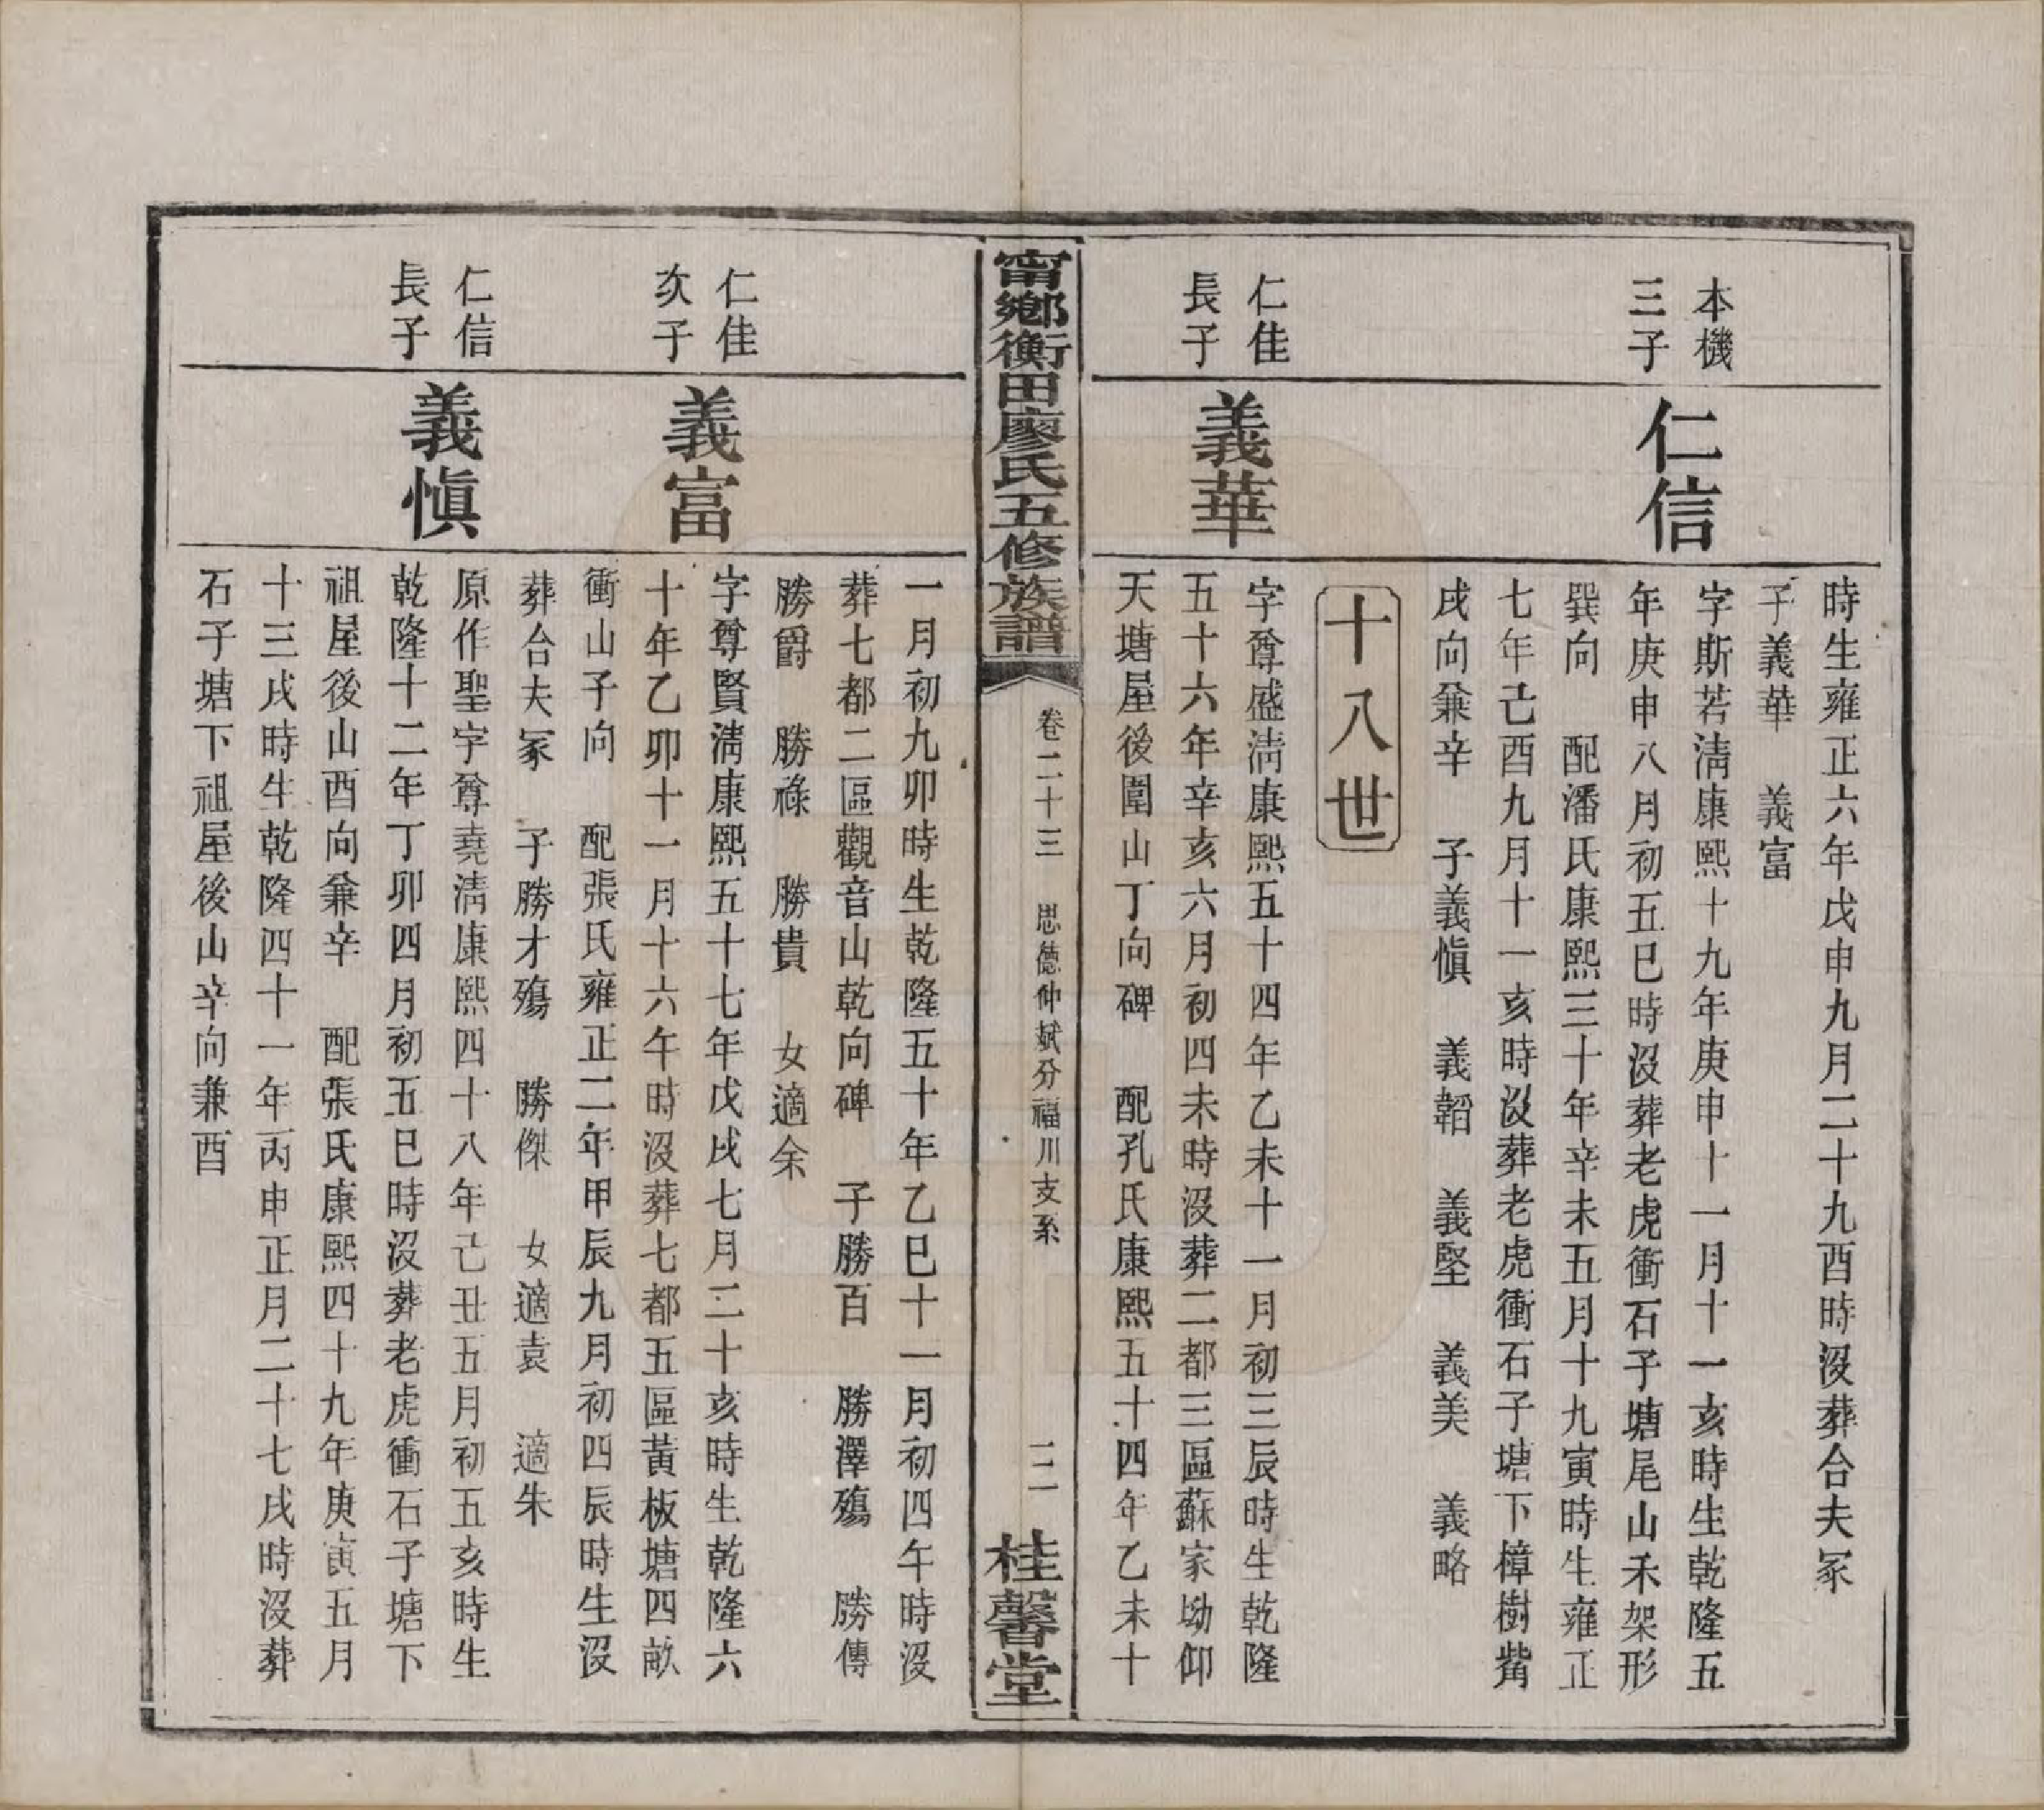 時生雍正六年戊申九月二十九酉時沒葬合夫冢
子義華　義富
本機
三子
仁信
字斯若淸康熙十九年庚申十一月十一亥時生乾隆五
年庚申八月初五巳時沒葬老虎衝石子塘尾山禾架形
巽向　配潘氏康熙三十年辛未五月十九寅時生雍正
七年己酉九月十一亥時沒葬老虎衝石子塘下樟樹觜
戌向兼辛　子義愼　義韜　義堅　義美　義略
十八世
仁佳
長子
義華
字尊盛淸康熙五十四年乙未十一月初三辰時生乾隆
五十六年辛亥六月初四未時沒葬二都三區蘇家坳仰
天塘屋後圍山丁向碑　配孔氏康熙五十四年乙未十
甯鄉衡田廖氏五修族譜
卷二十三　思德仲斌分福川支系
二
桂馨堂
一月初九卯時生乾隆五十年乙巳十一月初四午時沒
葬七都二區觀音山乾向碑　子勝百　勝澤殤　勝傳
勝爵　勝祿　勝貴　女適余
仁佳
次子
義富
字尊賢淸康熙五十七年戊戌七月二十亥時生乾隆六
十年乙卯十一月十六午時沒葬七都五區黃板塘四畝
衝山子向　配張氏雍正二年甲辰九月初四辰時生沒
葬合夫冢　子勝才殤　勝傑　女適袁　適朱
仁信
長子
義愼
原作聖字尊堯淸康熙四十八年己丑五月初五亥時生
乾隆十二年丁卯四月初五巳時沒葬老虎衝石子塘下
祖屋後山酉向兼辛　配張氏康熙四十九年庚寅五月
十三戌時生乾隆四十一年丙申正月二十七戌時沒葬
石子塘下祖屋後山辛向兼酉